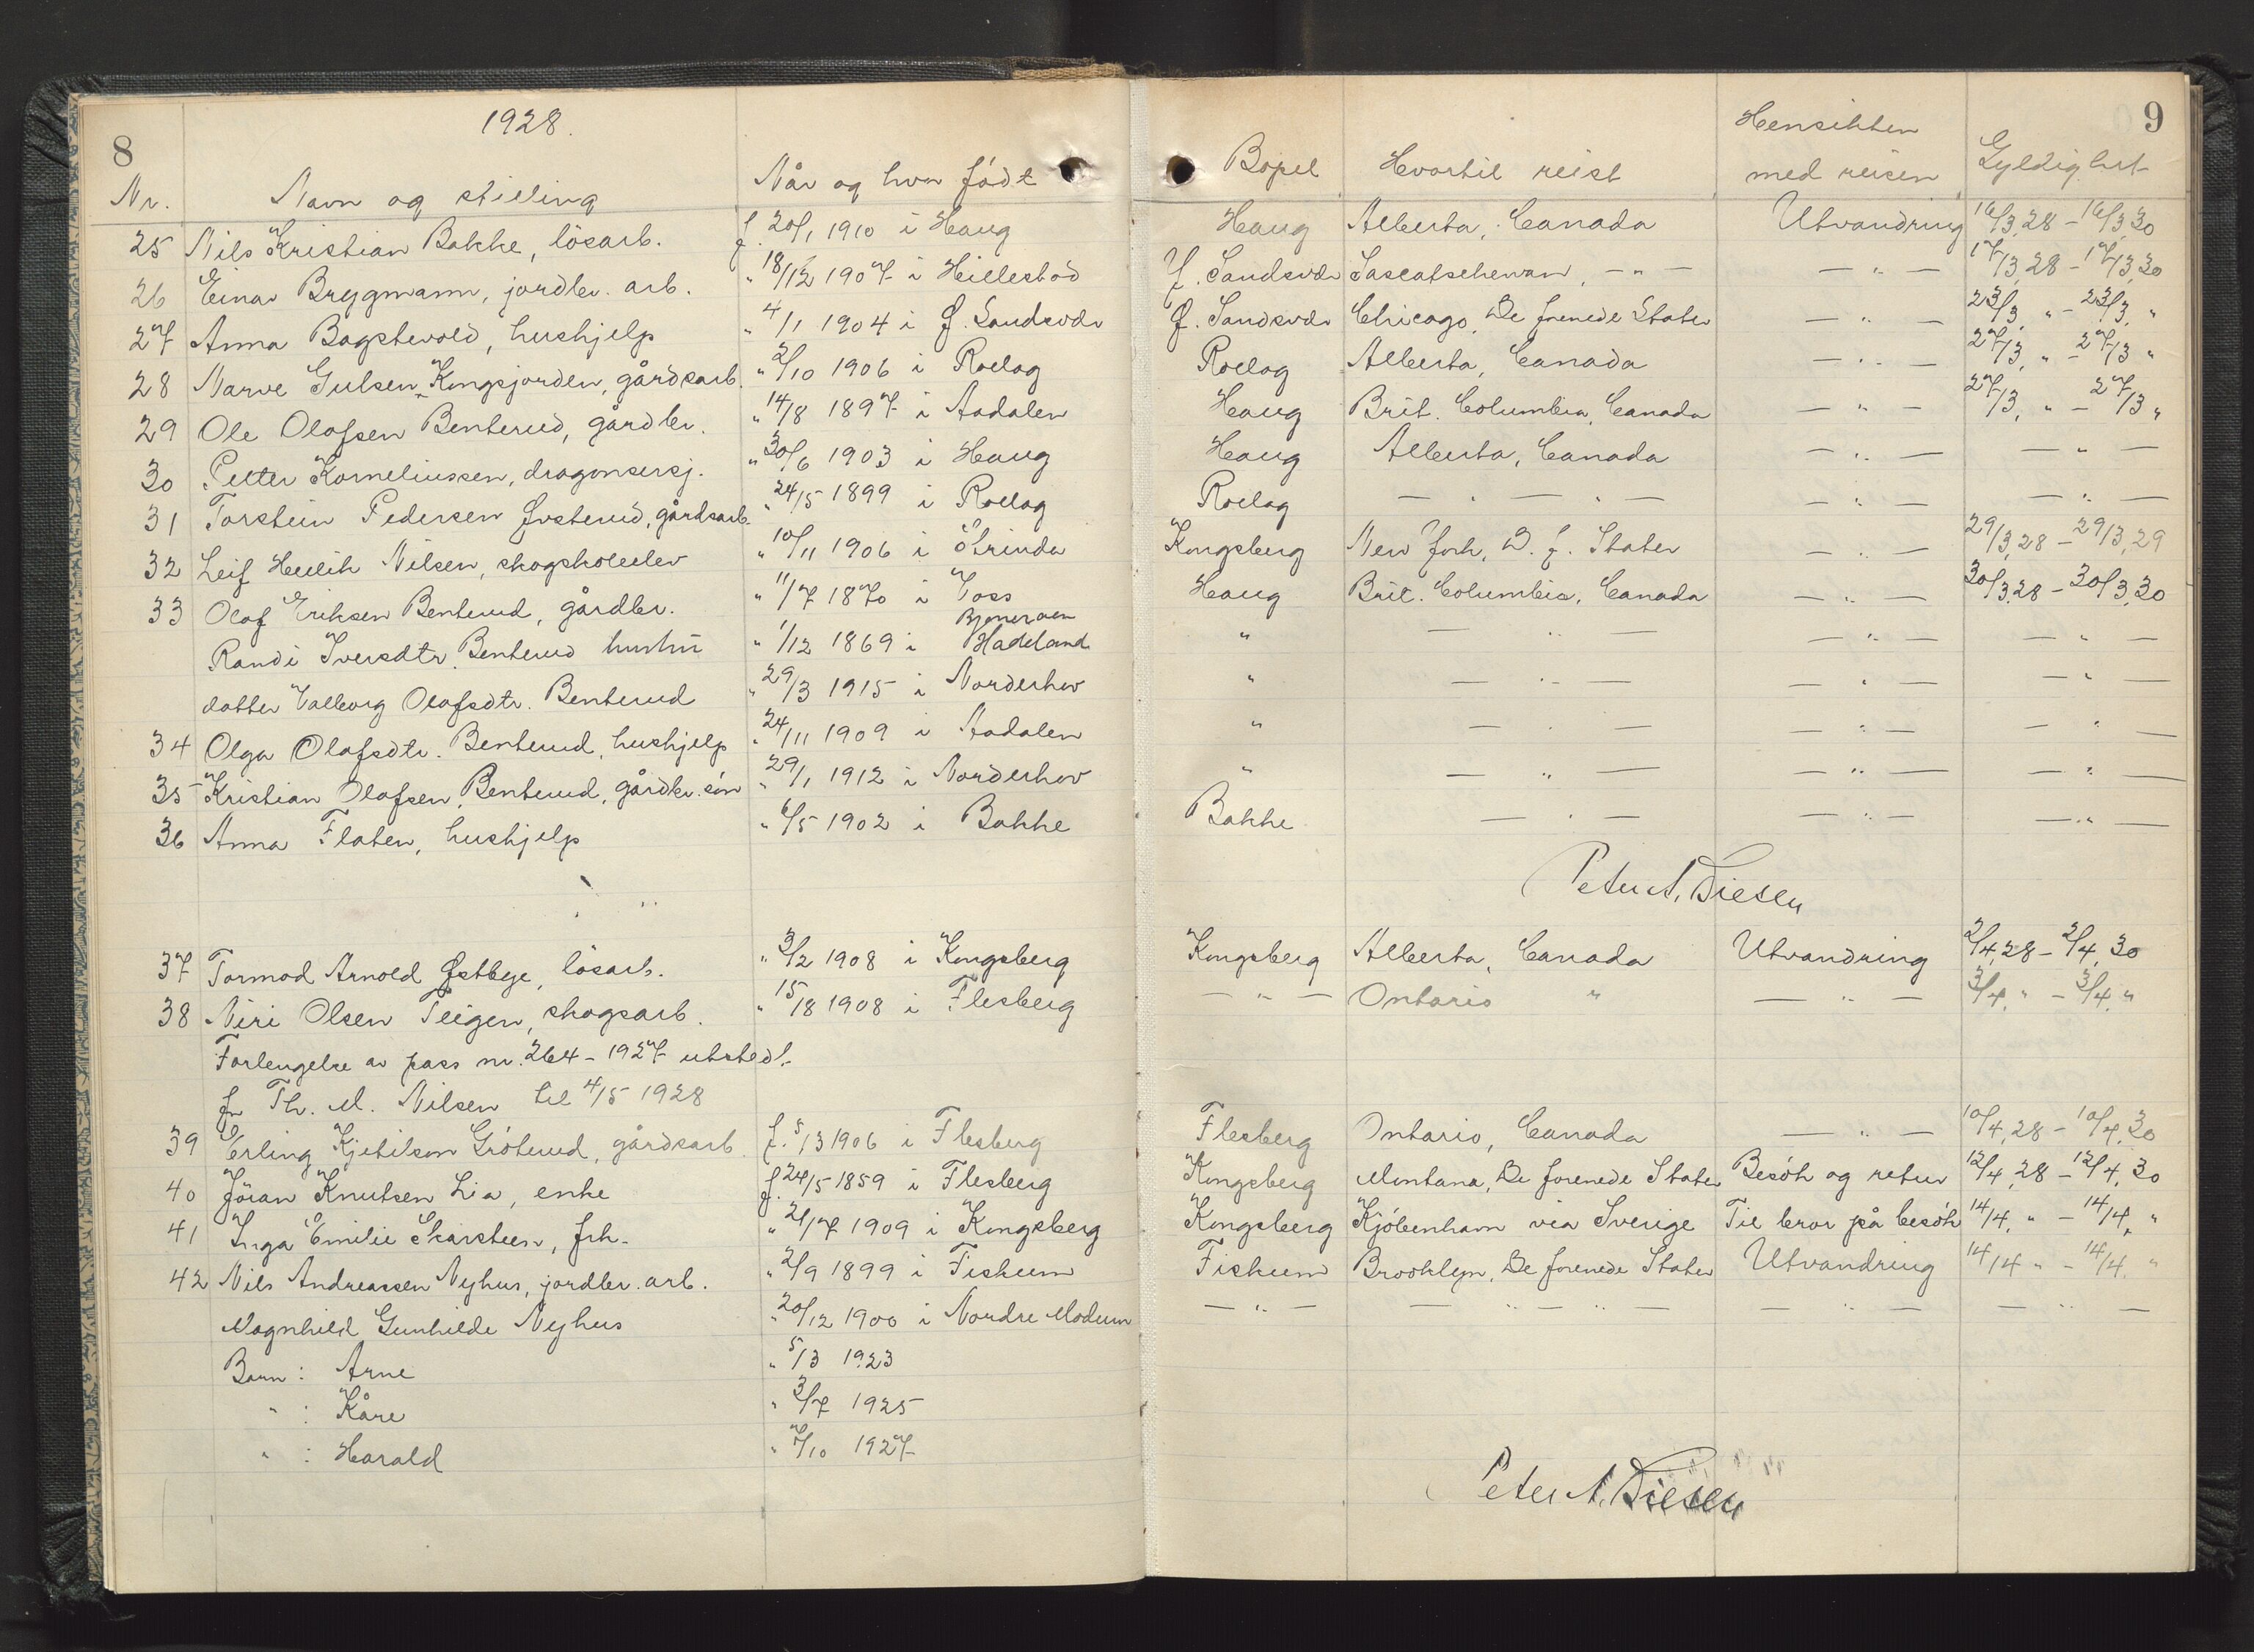 8
1928.
Nr. Navn og stilling Når og hvor født Bopel Hvortil reist Hensikten med reisen Gyldighet
9
25 Nils Kristian Bakke, lösarb. f. 20/1 1910 i Haug Haug Alberta, Canada Utvandring 16/3.28 - 16/3.30
26 Einar Bryggmann, jordbr. arb. " 18/12 1907 i Hillestad Y. Sandsvær Sascatschewan, — " — — " — 17/3.28 - 17/3.30
27 Anna Bagstevold, hushjelp " 4/1 1904 i Ø. Sandsvær Ø. Sandsvær Chicago, De forenede Stater — " — 23/3. " - 23/3. "
28 Narve Gulsen Kongsjorden, gårdsarb. " 2/10 1906 i Rollag Rollag Alberta, Canada — " — 27/3. " - 27/3 "
29 Ole Olafsen Benterud, gårdbr. " 14/8 1897 i Aadalen Haug Brit. Columbia, Canada — " — 27/3. " - 27/3 "
30 Petter Korneliussen, dragonsersj. " 30/6 1903 i Haug Haug Alberta, Canada — " — — " —
31 Torstein Pedersen Øvsterud, gårdsarb. " 24/5 1899 i Rollag Rollag — " — " — — " — — " —
32 Leif Heilik Nilsen, skogskoleelev " 10/11 1906 i Strinda Kongsberg New York, D. f. Stater — " — 29/3.28 - 29/3.29
33 Olaf Eriksen Benterud, gårdbr. " 11/7 1870 i Voss Haug Brit. Columbia, Canada — " — 30/3.28 - 30/3.30
Randi Iversdtr. Benterud hustru " 1/12 1869 i Bjoneroen Hadeland " — " — — " — — " —
datter Valborg Olafsdtr. Benterud " 29/3 1915 i Norderhov " — " — — " — — " —
34 Olga Olafsdtr. Benterud, hushjelp " 24/11 1909 i Aadalen " — " — — " — — " —
35 Kristian Olafsen Benterud, gårdbr. sön " 29/1 1912 i Norderhov " — " — — " — — " —
36 Anna Flaten, hushjelp " 6/5 1902 i Bakke Bakke — " — — " — — " —
Peter A. Diesen
37 Tormod Arnold Østbye, lösarb. " 3/2 1908 i Kongsberg Kongsberg Alberta, Canada Utvandring 2/4.28 - 2/4.30
38 Niri Olsen Teigen, skogsarb. " 15/8 1908 i Flesberg — " — Ontario " — " — 3/4. " - 3/4. "
Forlengelse av pass nr. 264 - 1927 utstedt
for Th. M. Nilsen til 4/5 1928
39 Erling Kjetilson Gröterud, gårdsarb. f. 5/3 1906 i Flesberg Flesberg Ontario, Canada — " — 10/4.28 - 10/4.30
40 Jöran Knutsen Lia, enke f. 24/5 1859 i Flesberg Kongsberg Montana, De forenede Stater Besök og retur 12/4.28 - 12/4.30
41 Inga Emilie Skarsteen, frk. " 21/7 1909 i Kongsberg Kongsberg Kjöbenhavn via Sverige Til bror på besök 14/4. " - 14/4. "
42 Nils Andreassen Nyhus, jordbr. arb. " 2/9 1899 i Fiskum Fiskum Brooklyn, De forenede Stater Utvandring 14/4 " - 14/4. "
Magnhild Gunhilde Nyhus " 20/12 1900 i Nordre Modum — " — — " — " — — " — — " —
Barn : Arne " 5/3 1923
" : Kåre " 3/7 1925
" : Harald " 7/10 1927
Peter A. Diesen